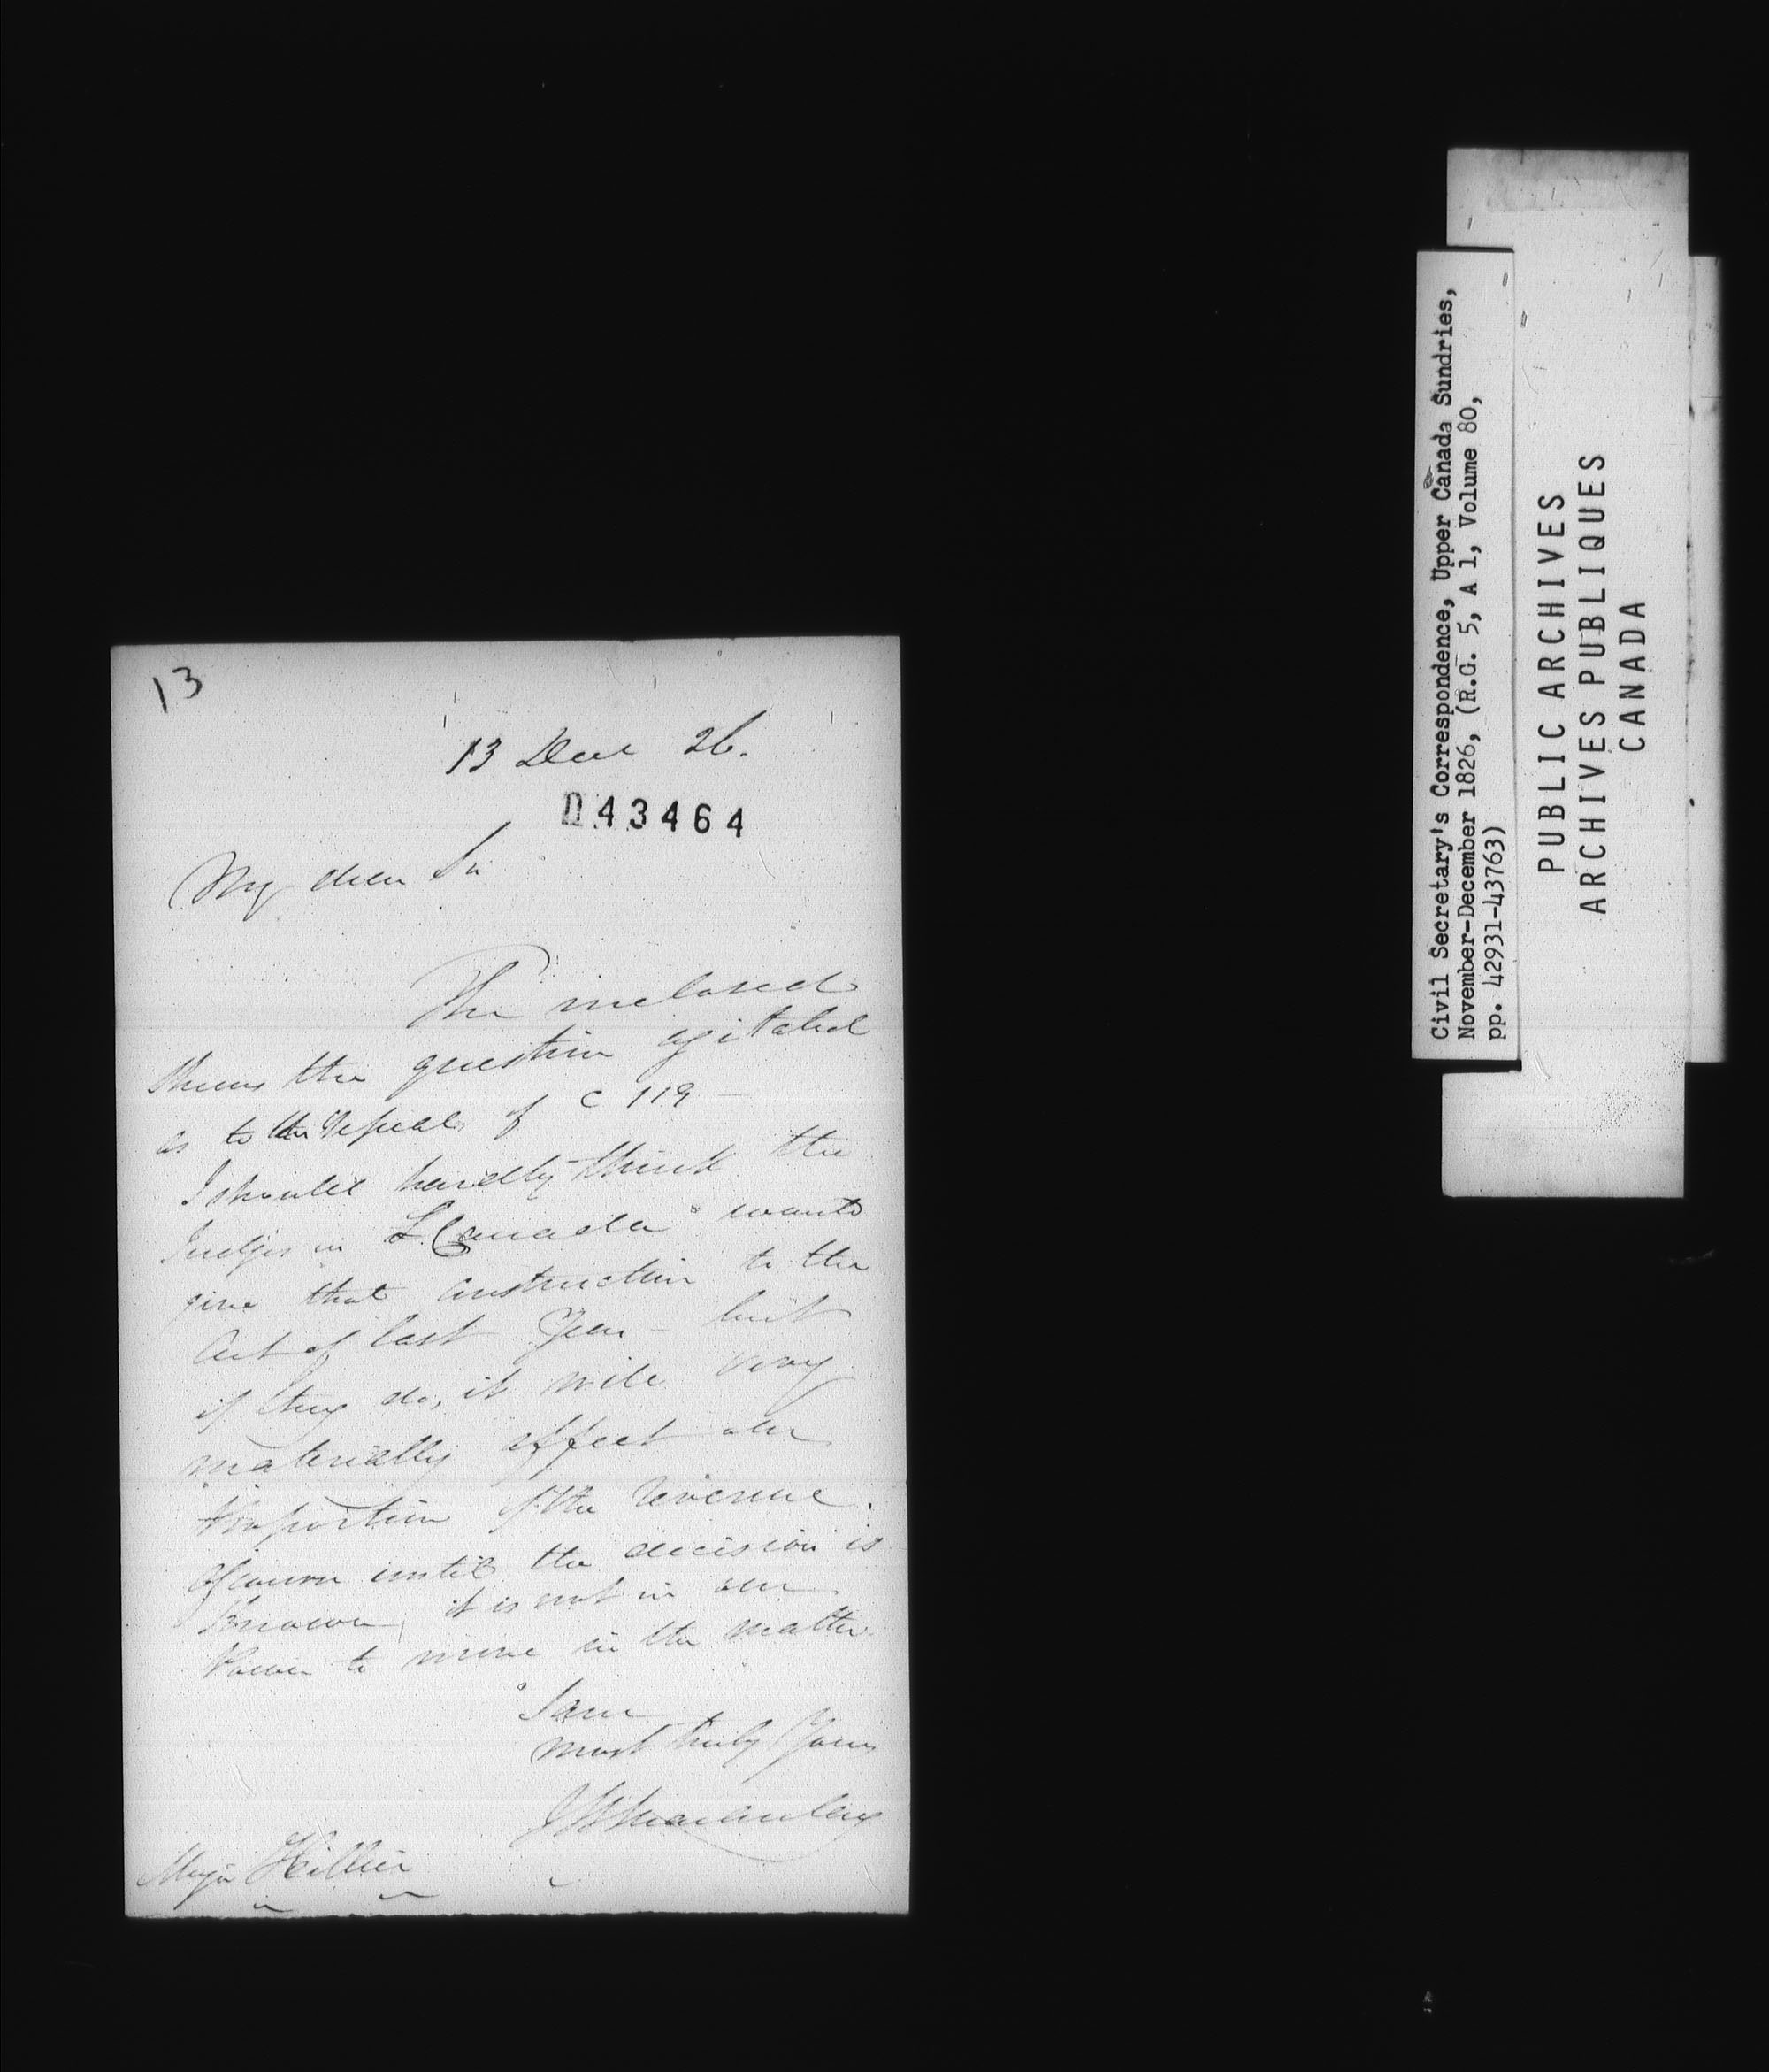 13
13 Decr 26.
043464
My dear Sir
The inclosed
shews the question agitated
as to the repeal of C 119 —
I should hardly think the
Judges in L. Canada would
give that construction to the
Act of last Year — but
if they do, it will very
materially affect our
proportion of the revenue.
Of course until the decision is
known, it is not in our
power to move in the matter.
I am
most truly Yours
Macaulay
Major Hillier
Civil Secretary's Correspondence, Upper Canada Sundries,
November-December 1826, (R.G. 5, A 1, Volume 80,
pp. 42931-43763)
PUBLIC ARCHIVES
ARCHIVES PUBLIQUES
CANADA